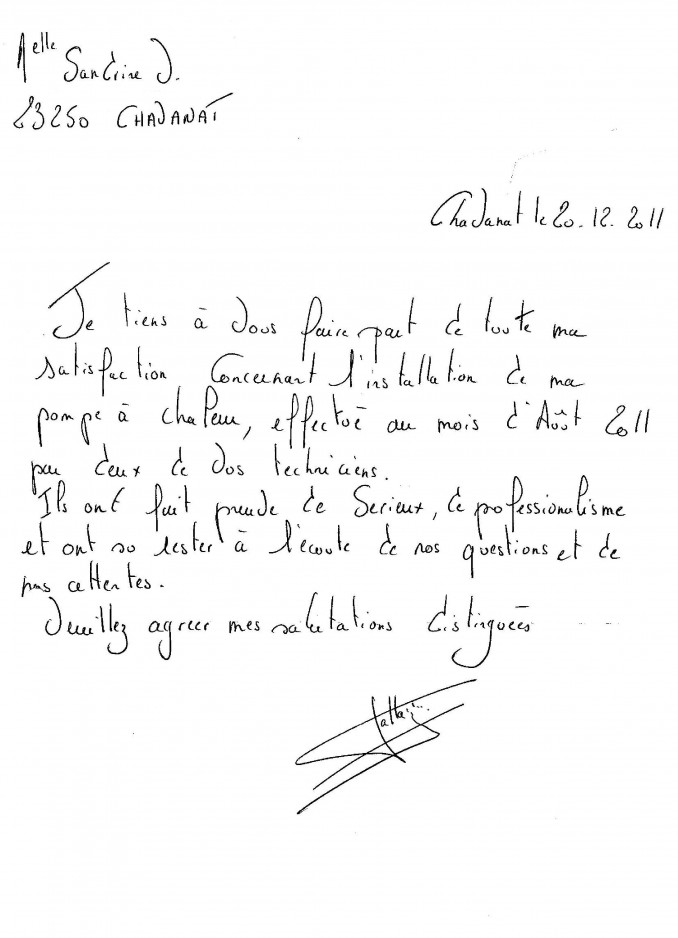 Melle Sandrine D.
23250 CHAVANAT
Chavanat le 20.12.2011
Je tiens à vous faire part de toute ma
satisfaction Concernant l'installation de ma
pompe à chaleur, effectué au mois d'Août 2011
par deux de vos techniciens.
Ils ont fait preuve de Serieux, de professionalisme
et ont su rester à l'écoute de nos questions et de
nos attentes.
Veuillez agreer mes salutations distinguées